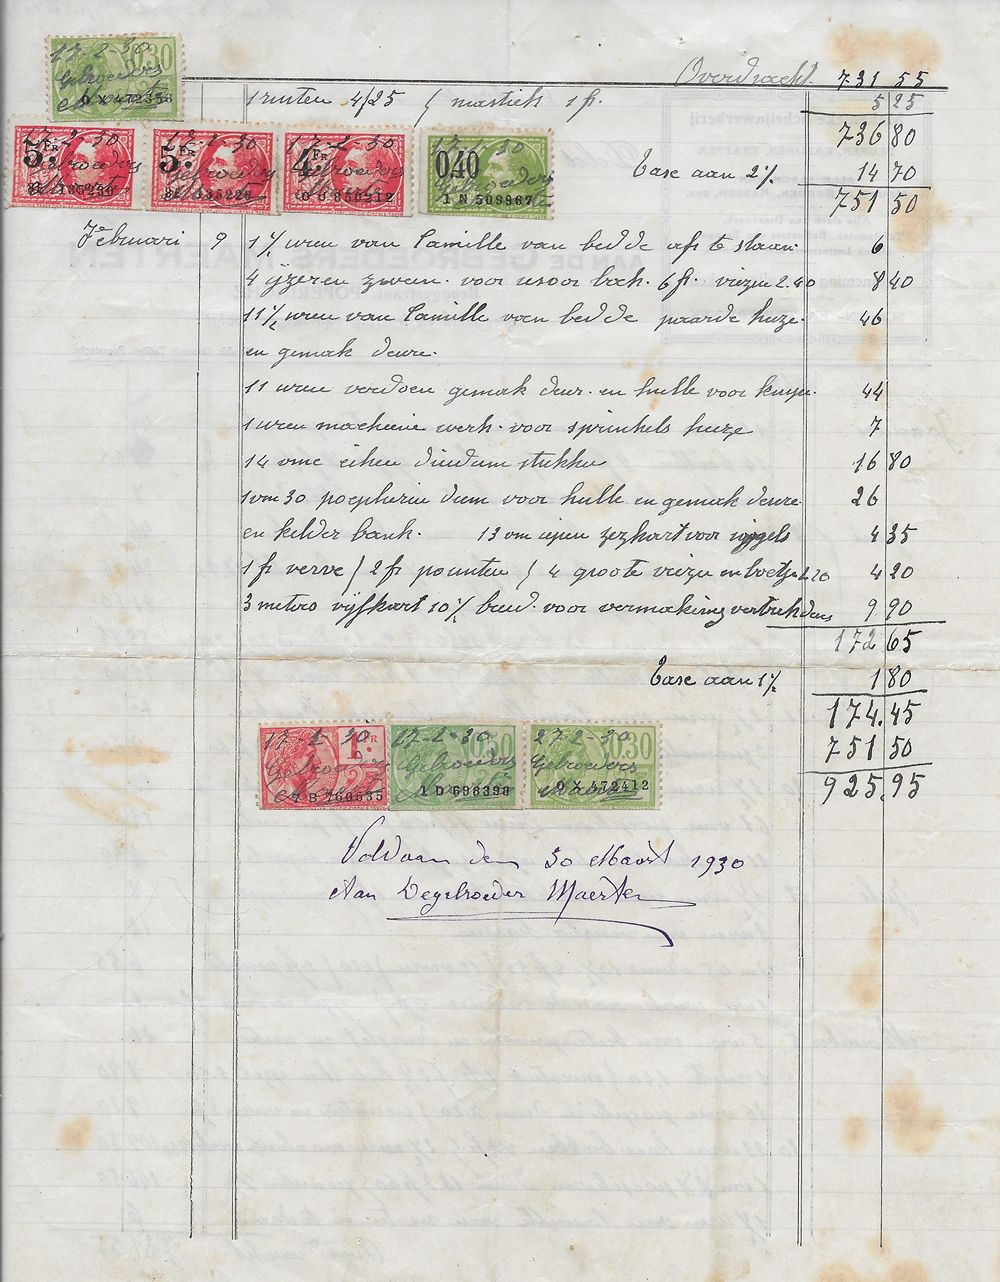 Overdracht 731 55
1 ruiten 4/25 / mastiek 1 fr. 5 25
736 80
Taxe aan 2% 14 70
751 50
17-2-30 0.30
Gebroeders
Maerten
O X 472358
17-2-30 5 FR
Gebroeders
17-2-30 5 FR
Gebroeders
17-2-30 4 FR
Gebroeders
O G 850912
17-2-30 0,40
Gebroeders
1 N 509867
Februari 9 1 ½ uren van Camille van bedde af te slaan 6
4 ijzeren voor 6 fr. vizen 2.40 8 40
11 ½ uren van Camille van bedde paarde huze 46
en gemak deure.
11 uren verdoen gemak deur. en hulle voor 44
1 uren machienie werk. voor sprinkels huze 7
14 vmc eiken diedum stukken 16 80
1 vm 30 poepherin dum voor hulle en gemak deure 26
en kelder bank. 13 vm voor 4 35
1 fr verve / 2 fr pounten / 4 groote vizen en 1.20 4 20
3 meters vijfkart 10% breed voor vermaking 9 90
172 65
Taxe aan 1% 1 80
174.45
751 50
925.95
17-2-30 1 FR
Gebroeders
Maerten
17-2-30 0,50
Gebroeders
Maerten
1 D 698398
27-2-30 0.30
Gebroeders
Maerten
O X 472412
Voldaan den 30 Maart 1930
Aan De gebroeder Maerten